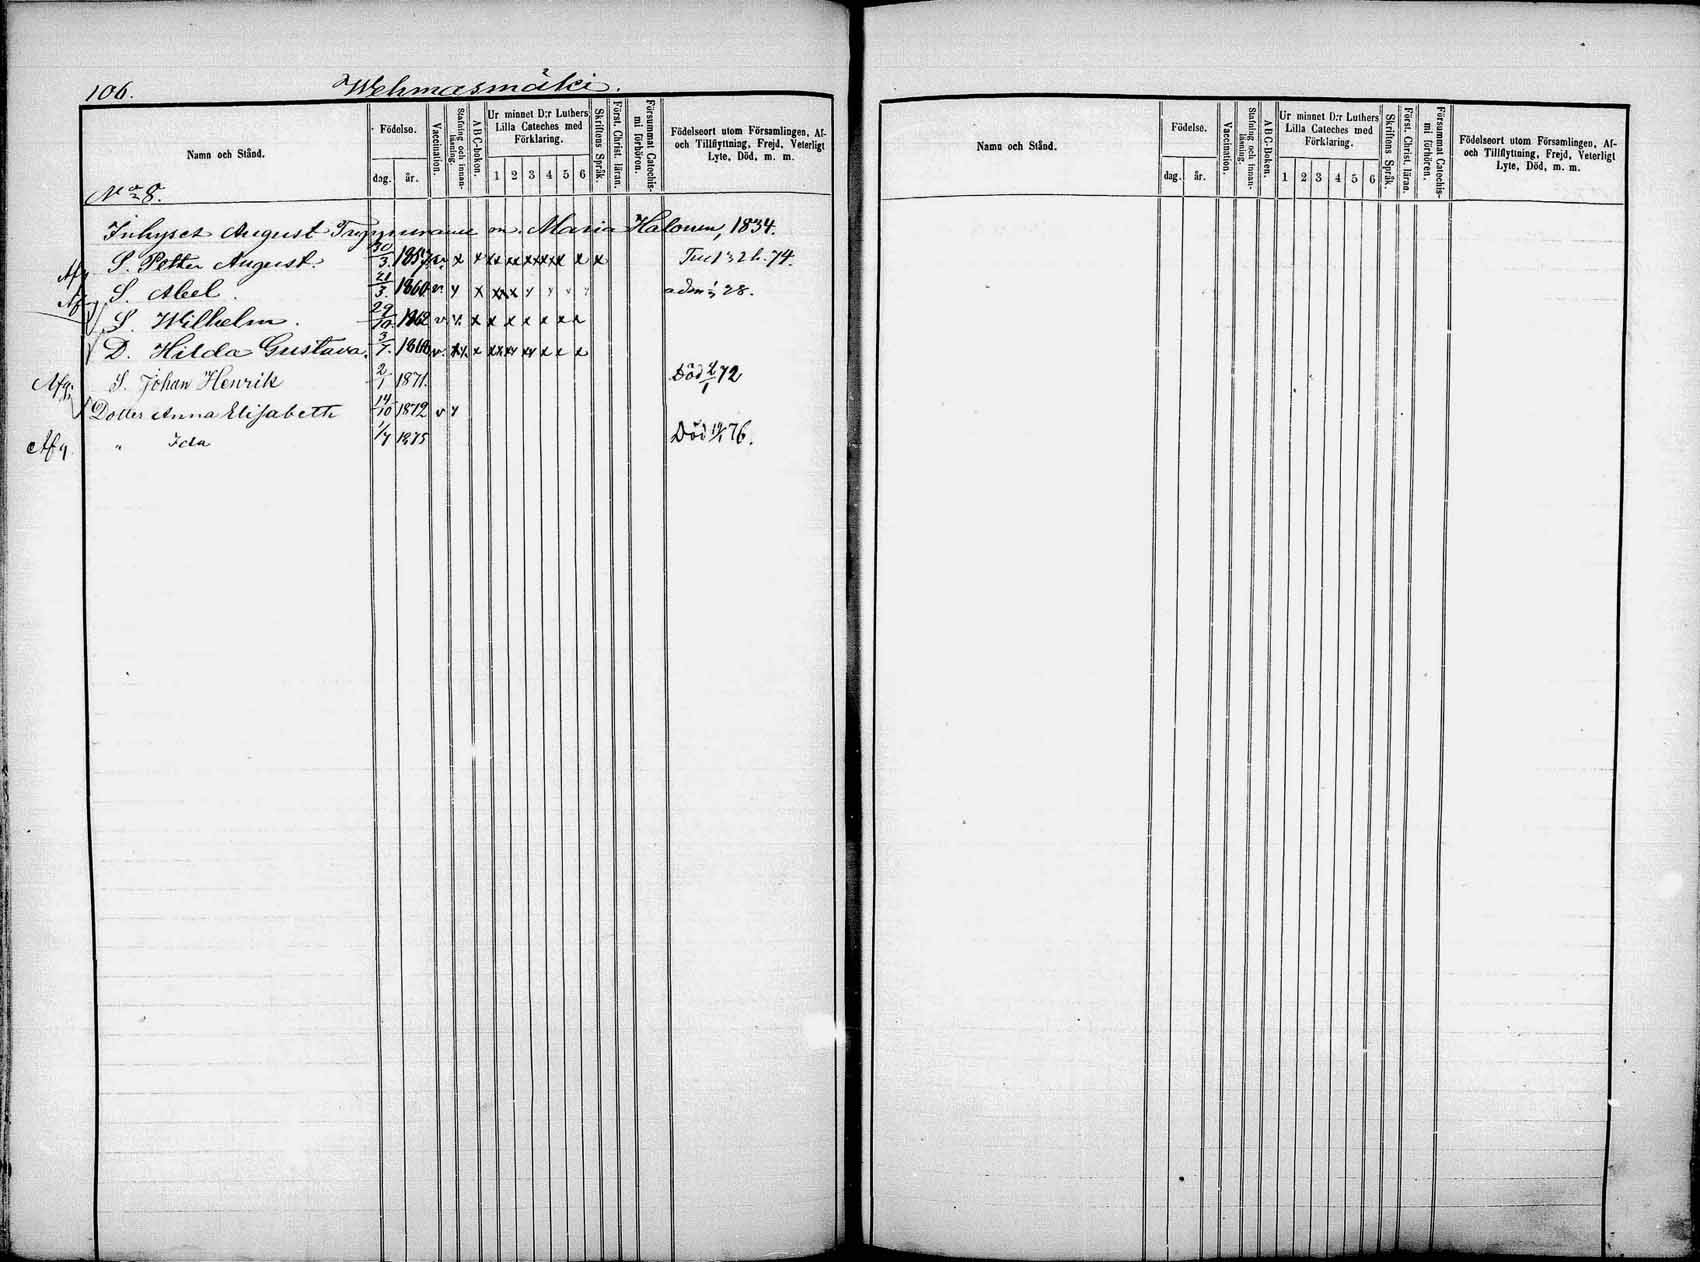 106. Wehmasmäki.
Namn och Stånd. Födelse. dag. år. Vaccination. Stafning och innanläsning. ABC-boken. Ur minnet D:r Luthers Lilla Cateches med Förklaring. 1 2 3 4 5 6 Skriftens Språk. Först. Christ. läran. Försummat Catechismi förhören. Födelseort utom Församlingen, Af- och Tillflyttning, Frejd, Veterligt Lyte, Död, m. m.
No 8.
Inhyses August m. Maria Halonen, 1834.
Afg S. Petter August. 30/3. 1857. v. x x xx xx xx xx x x x 74.
Af S. Abel. 21/3. 1860 v. y x xx x y y v y adm 28.
S. Wilhelm. 29/10. 1862 v. y. x x x x x x x
D. Hilda Gustava. 3/7. 1868 v. x x. x xx xy xy x x x
Afg. S. Johan Henrik 2/1 1871. Död 2/1 72
Dotter Anna Elisabeth 14/10 1872 v y
Afg " Ida 1/7 1875 Död 76.
Namn och Stånd. Födelse. dag. år. Vaccination. Stafning och innanläsning. ABC-Boken. Ur minnet D:r Luthers Lilla Cateches med Förklaring. 1 2 3 4 5 6 Skriftens Språk. Först. Christ. läran. Försummat Catechismi förhören. Födelseort utom Församlingen, Af- och Tillflyttning, Frejd, Veterligt Lyte, Död, m. m.